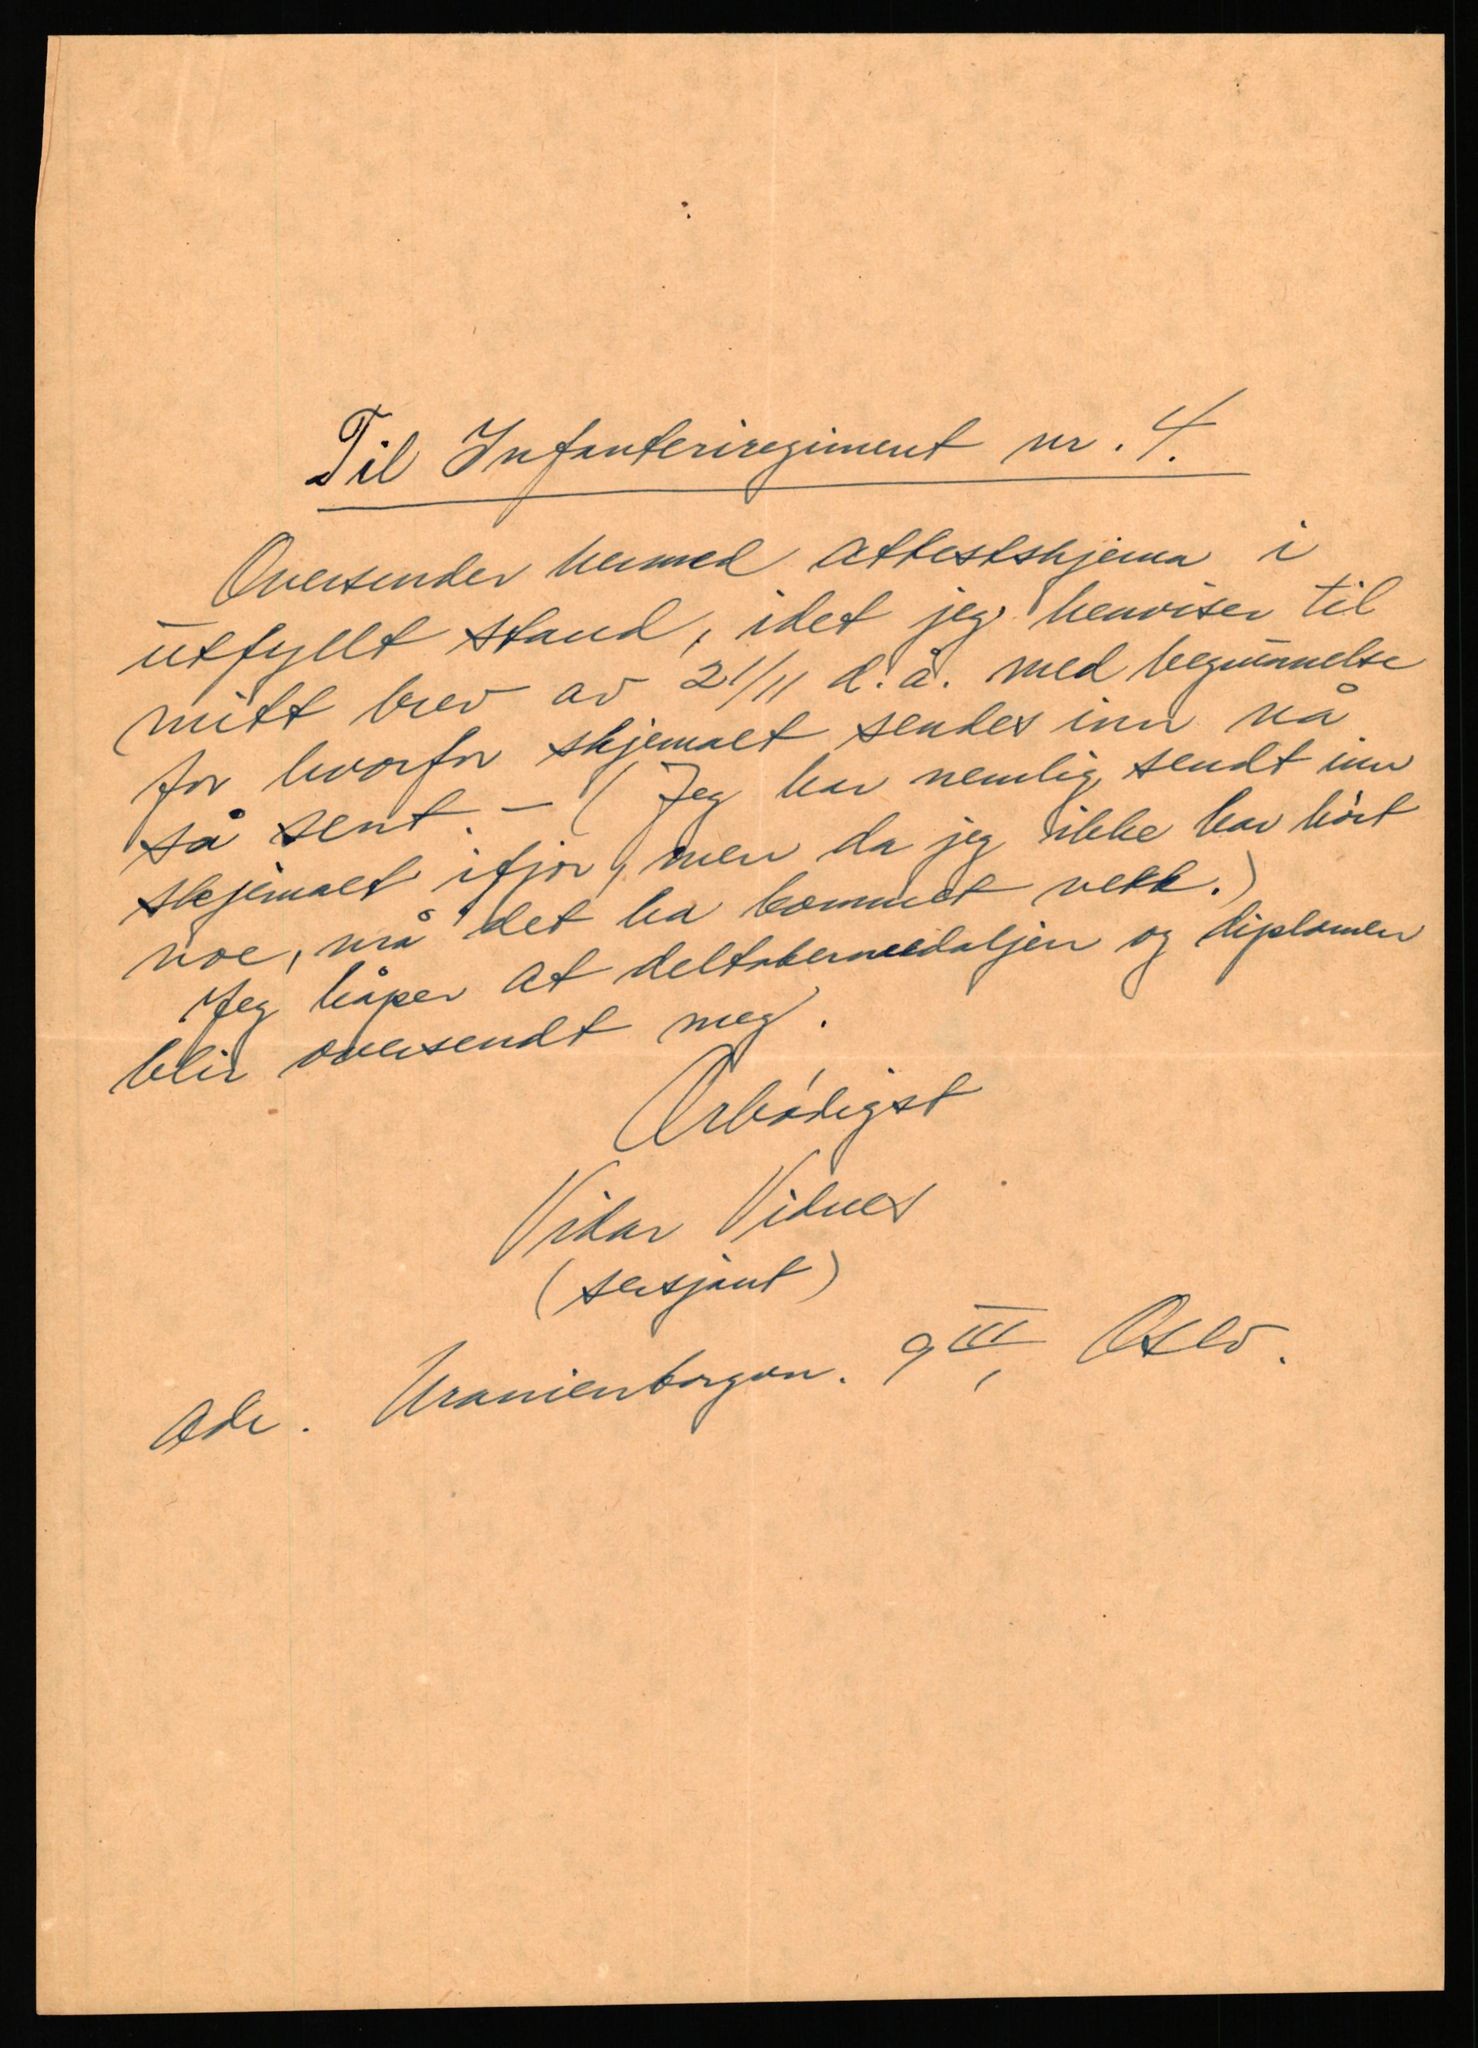 Til Infanteriregiment nr. 4.
Oversender hermed attestskjema i
utfyllt stand, idet jeg henviser til
mitt brev av 21/11 d.å. med begrunnelse
for hvorfor skjemaet sendes inn nå
så sent. – (Jeg har nemlig sendt inn
skjemaet ifjor, men da jeg ikke har hört
noe, må det ha kommet vekk.)
Jeg håper at deltakermedaljen og diplomen
blir oversendt meg.
Ærbódigst
Vidar Vidnes
(sersjant)
Adr. Uranienborgvn. 9 III, Oslo.